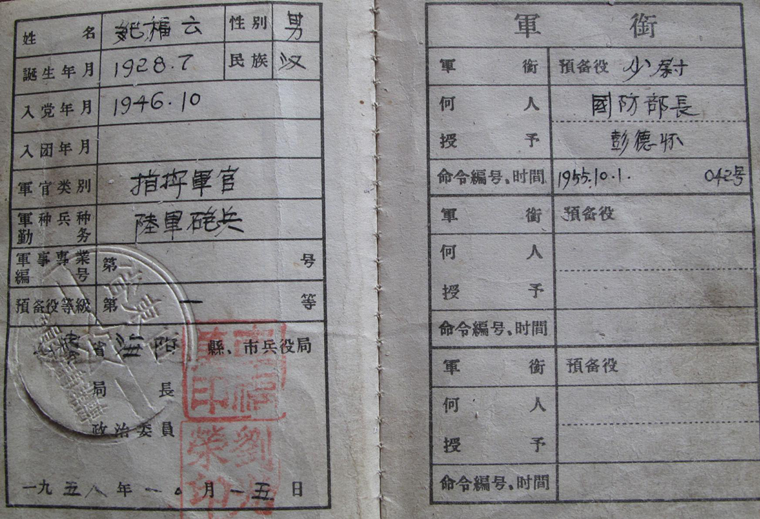 姓名 福云 性別 男
誕生年月 1928.7 民族 汉
入党年月 1946.10
入团年月
軍官类別 指挥軍官
軍种兵种勤务 陸軍砲兵
軍事專業編号 第 号
預备役等級 第一等
省 縣、市兵役局
局長
政治委員
一九五八年一〇月一五日
軍銜
軍銜 預备役 少尉
何人 國防部長
授予 彭德怀
命令編号、时間 1955.10.1. 042号
軍銜 預备役
何人
授予
命令編号、时間
軍銜 預备役
何人
授予
命令編号、时間